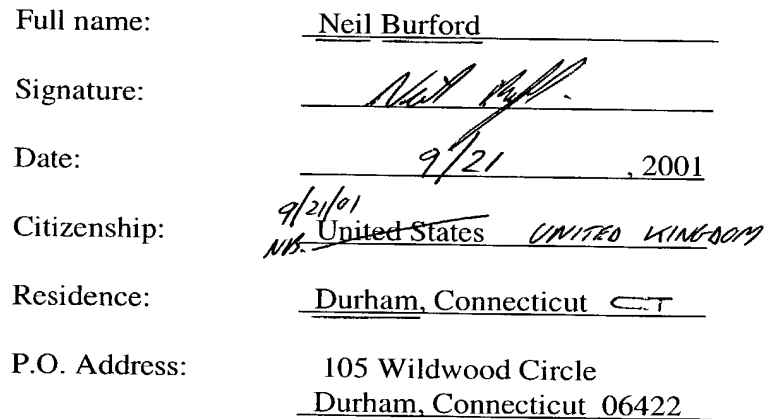 Full name: Neil Burford
Signature: Neil Buff.
Date: 9/21, 2001
9/21/01
Citizenship: NB. United States UNITED KINGDOM
Residence: Durham, Connecticut CT
P.O. Address: 105 Wildwood Circle
Durham, Connecticut 06422